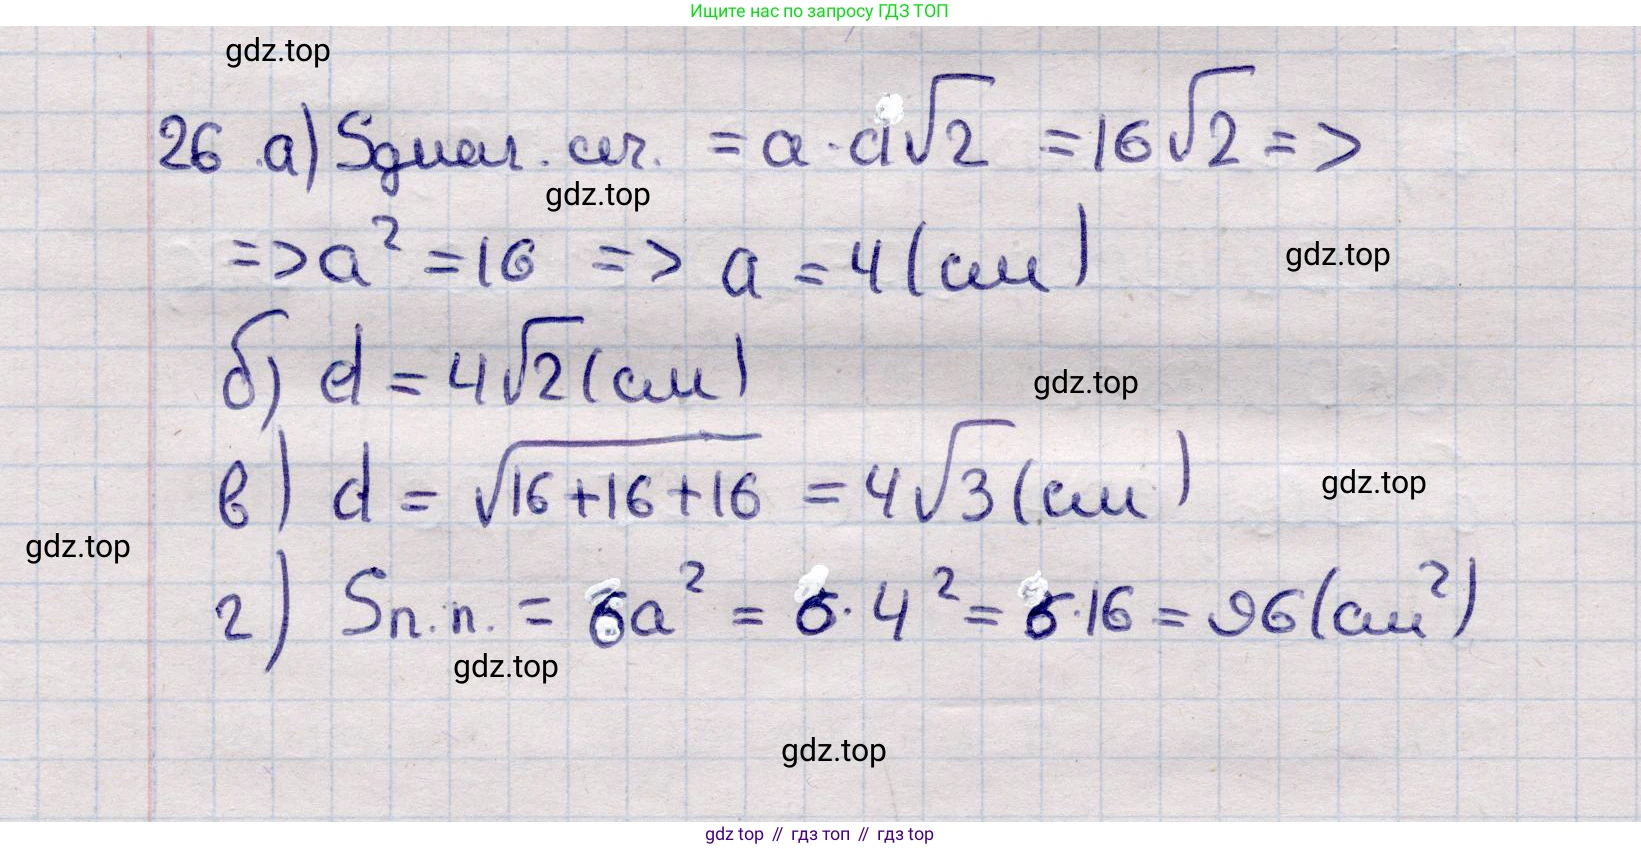 Ищите нас по запросу ГДЗ ТОП
gdz.top
26 а) Sдиаг. сеч. = a · a√2 = 16√2 =>
gdz.top
=> a² = 16 => a = 4 (см)
gdz.top
б) d = 4√2 (см)
gdz.top
в) d = √16+16+16 = 4√3 (см)
gdz.top
gdz.top
г) Sп.п. = 6a² = 6·4² = 6·16 = 96 (см²)
gdz.top
gdz.top
gdz top // гдз топ // гдз top